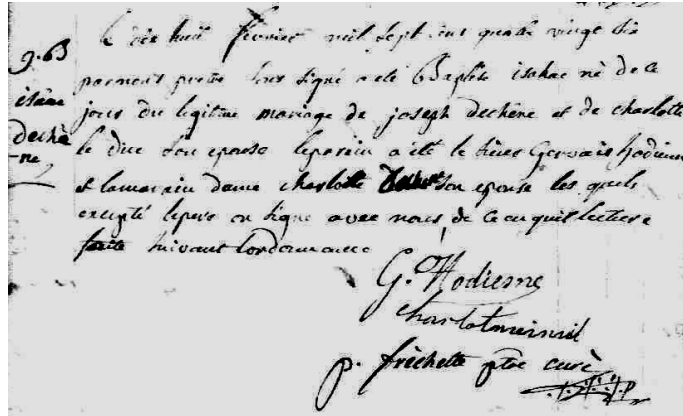 9. B
isaac
dechê
-ne
Le dix huit fevrier mil sept cens quatre vingt dix
par nous pretre sous signé a eté Baptisé isahac né de ce
jour du legitime mariage de joseph dechêne et de charlotte
le duc son epouse le parain a été le sieur Gervais hodiesne
et la marain dame charlotte son epouse les quels
excepté le pere on signé avec nous, de ce enquis lecture
faite suivant lordonnance
G. Hodiesne
p. frèchette ptre curé